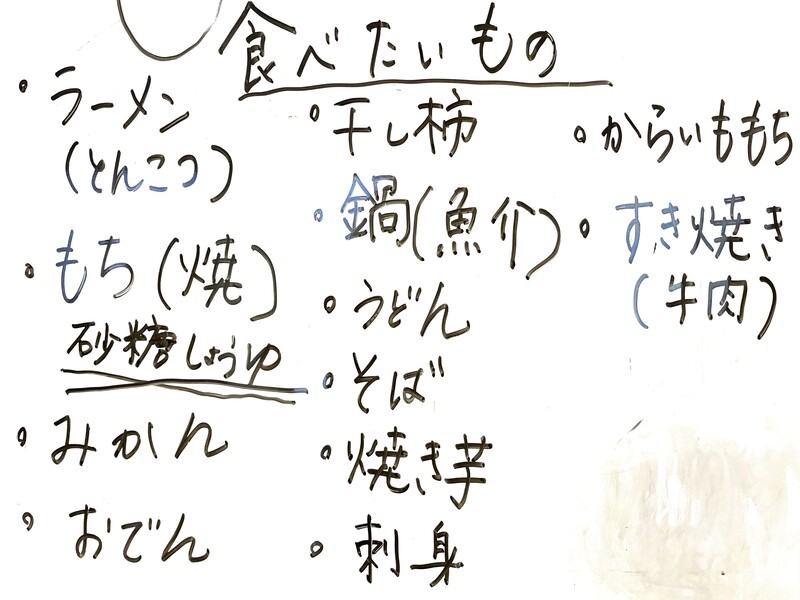 食べたいもの
・ラーメン
(とんこつ)
・もち(焼)
砂糖しょうゆ
・みかん
・おでん
・干し柿
・鍋(魚介)
・うどん
・そば
・焼き芋
・刺身
・からいももち
・すき焼き
(牛肉)